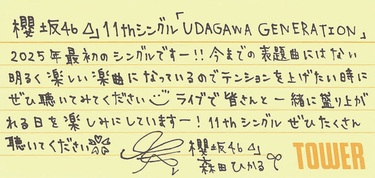 櫻坂46 11thシングル「UDAGAWA GENERATION」
2025年最初のシングルですー!!今までの表題曲にはない
明るく楽しい楽曲になっているのでテンションを上げたい時に
ぜひ聴いてみてください ライブで皆さんと一緒に盛り上が
れる日を楽しみにしていますー!11thシングルぜひたくさん
聴いてください
櫻坂46
森田ひかる
TOWER